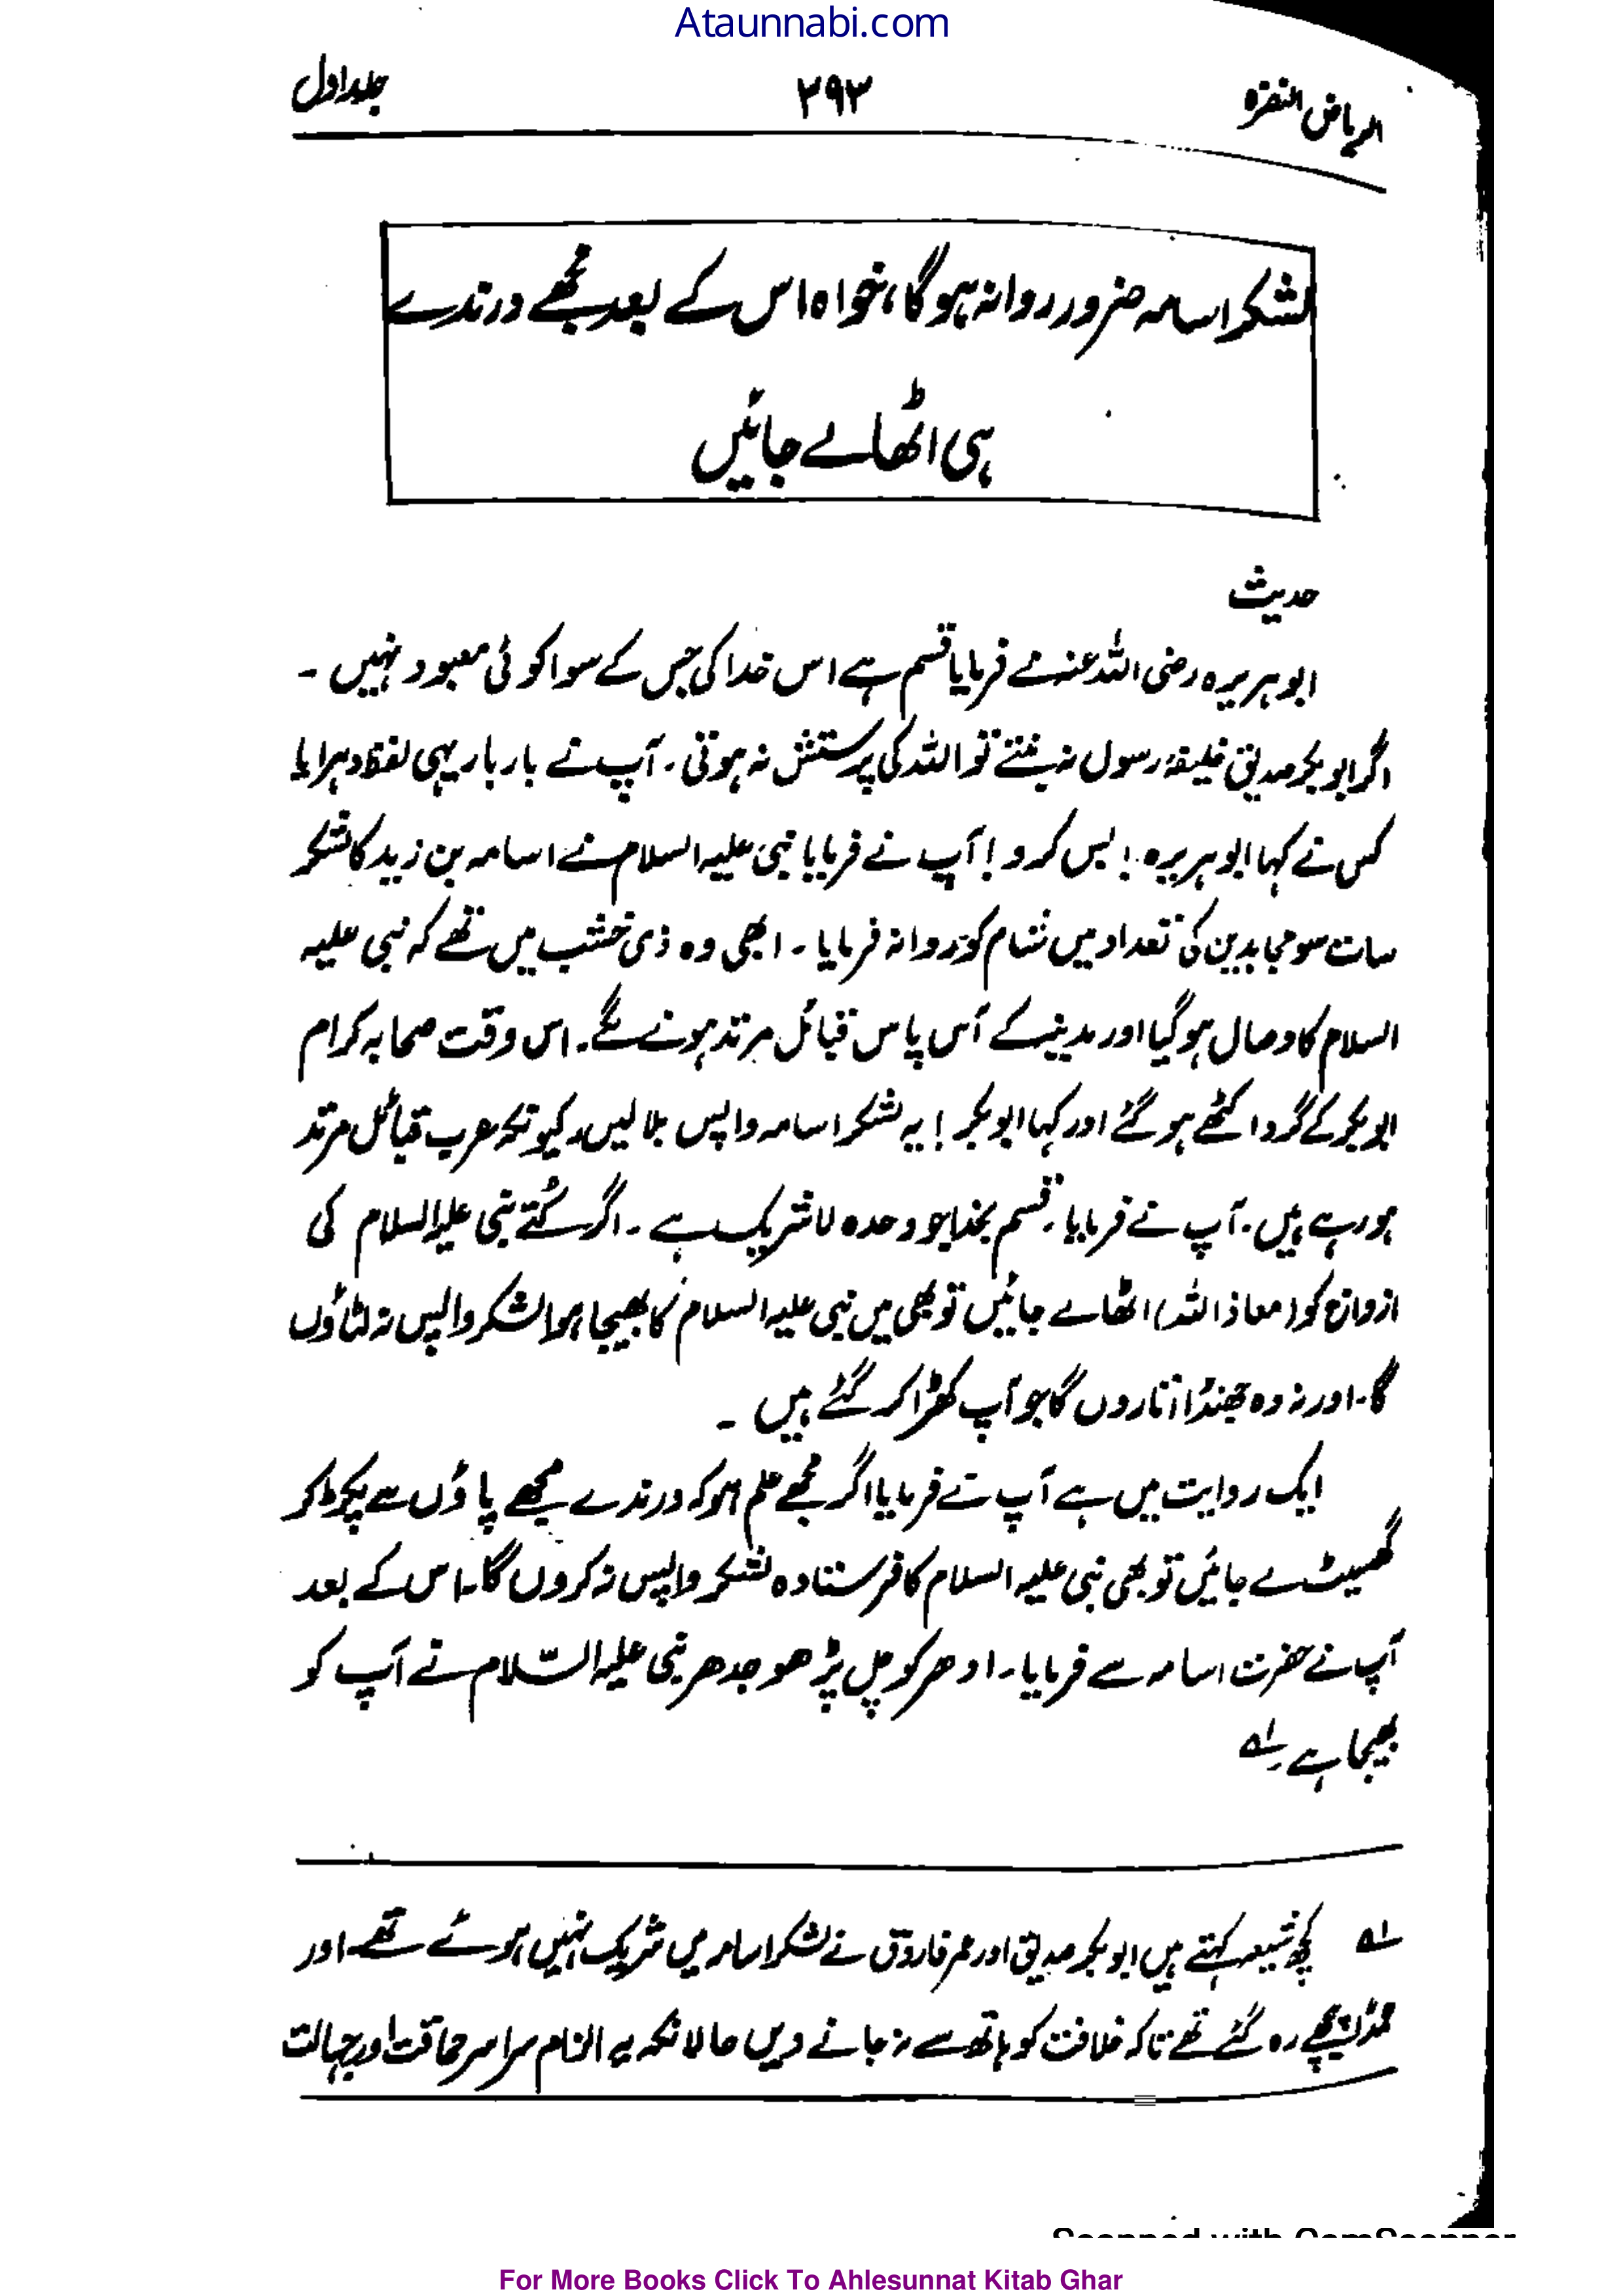 Ataunnabi.com
الریاض النضرہ ۳۹۳ جلد اول
لشکر اسامہ ضرور روانہ ہوگا، خواہ اس کے بعد مجھے درندے
ہی اٹھا لے جائیں
حدیث
ابوہریرہ رضی اللہ عنہ نے فرمایا قسم ہے اس خدا کی جس کے سوا کوئی معبود نہیں ۔
اگر ابوبکر صدیق خلیفۂ رسول نہ بنتے تو اللہ کی پرستش نہ ہوتی ۔ آپ نے بار بار یہی لفظ دہرایا
کسی نے کہا ابوہریرہ ! بس کرو ! آپ نے فرمایا نبی علیہ السلام نے اسامہ بن زید کا لشکر
سات سو مجاہدین کی تعداد میں شام کو روانہ فرمایا ۔ ابھی وہ ذی خشب میں تھے کہ نبی علیہ
السلام کا وصال ہوگیا اور مدینہ کے آس پاس قبائل مرتد ہونے لگے ۔ اس وقت صحابہ کرام
ابوبکر کے گرد اکٹھے ہوگئے اور کہا ابوبکر ! یہ لشکر اسامہ واپس بلا لیں ۔ کیونکہ عرب قبائل مرتد
ہو رہے ہیں ۔ آپ نے فرمایا ۔ قسم بخدا جو وحدہ لا شریک ہے ۔ اگر کُتے نبی علیہ السلام کی
ازواج کو (معاذ اللہ) اٹھا لے جائیں تو بھی میں نبی علیہ السلام کا بھیجا ہوا لشکر واپس نہ لٹاؤں
گا ۔ اور نہ وہ جھنڈا اتاروں گا جو آپ کھڑا کر گئے ہیں ۔
ایک روایت میں ہے آپ نے فرمایا اگر مجھے علم ہو کہ درندے مجھے پاؤں سے پکڑ کر
گھسیٹ لے جائیں تو بھی نبی علیہ السلام کا فرستادہ لشکر واپس نہ کروں گا ۔ اس کے بعد
آپ نے حضرت اسامہ سے فرمایا ۔ ادھر کو چل پڑھو جدھر نبی علیہ السّلام نے آپ کو
بھیجا ہے ۔ لہ
لہ کچھ شیعہ کہتے ہیں ابوبکر صدیق اور عمر فاروق نے لشکر اسامہ میں شریک نہیں ہوئے تھے اور
عمدًا پیچھے رہ گئے تھے تاکہ خلافت کو ہاتھ سے نہ جانے دیں حالانکہ یہ الزام سراسر حماقت اور جہالت
Scanned with CamScanner
For More Books Click To Ahlesunnat Kitab Ghar